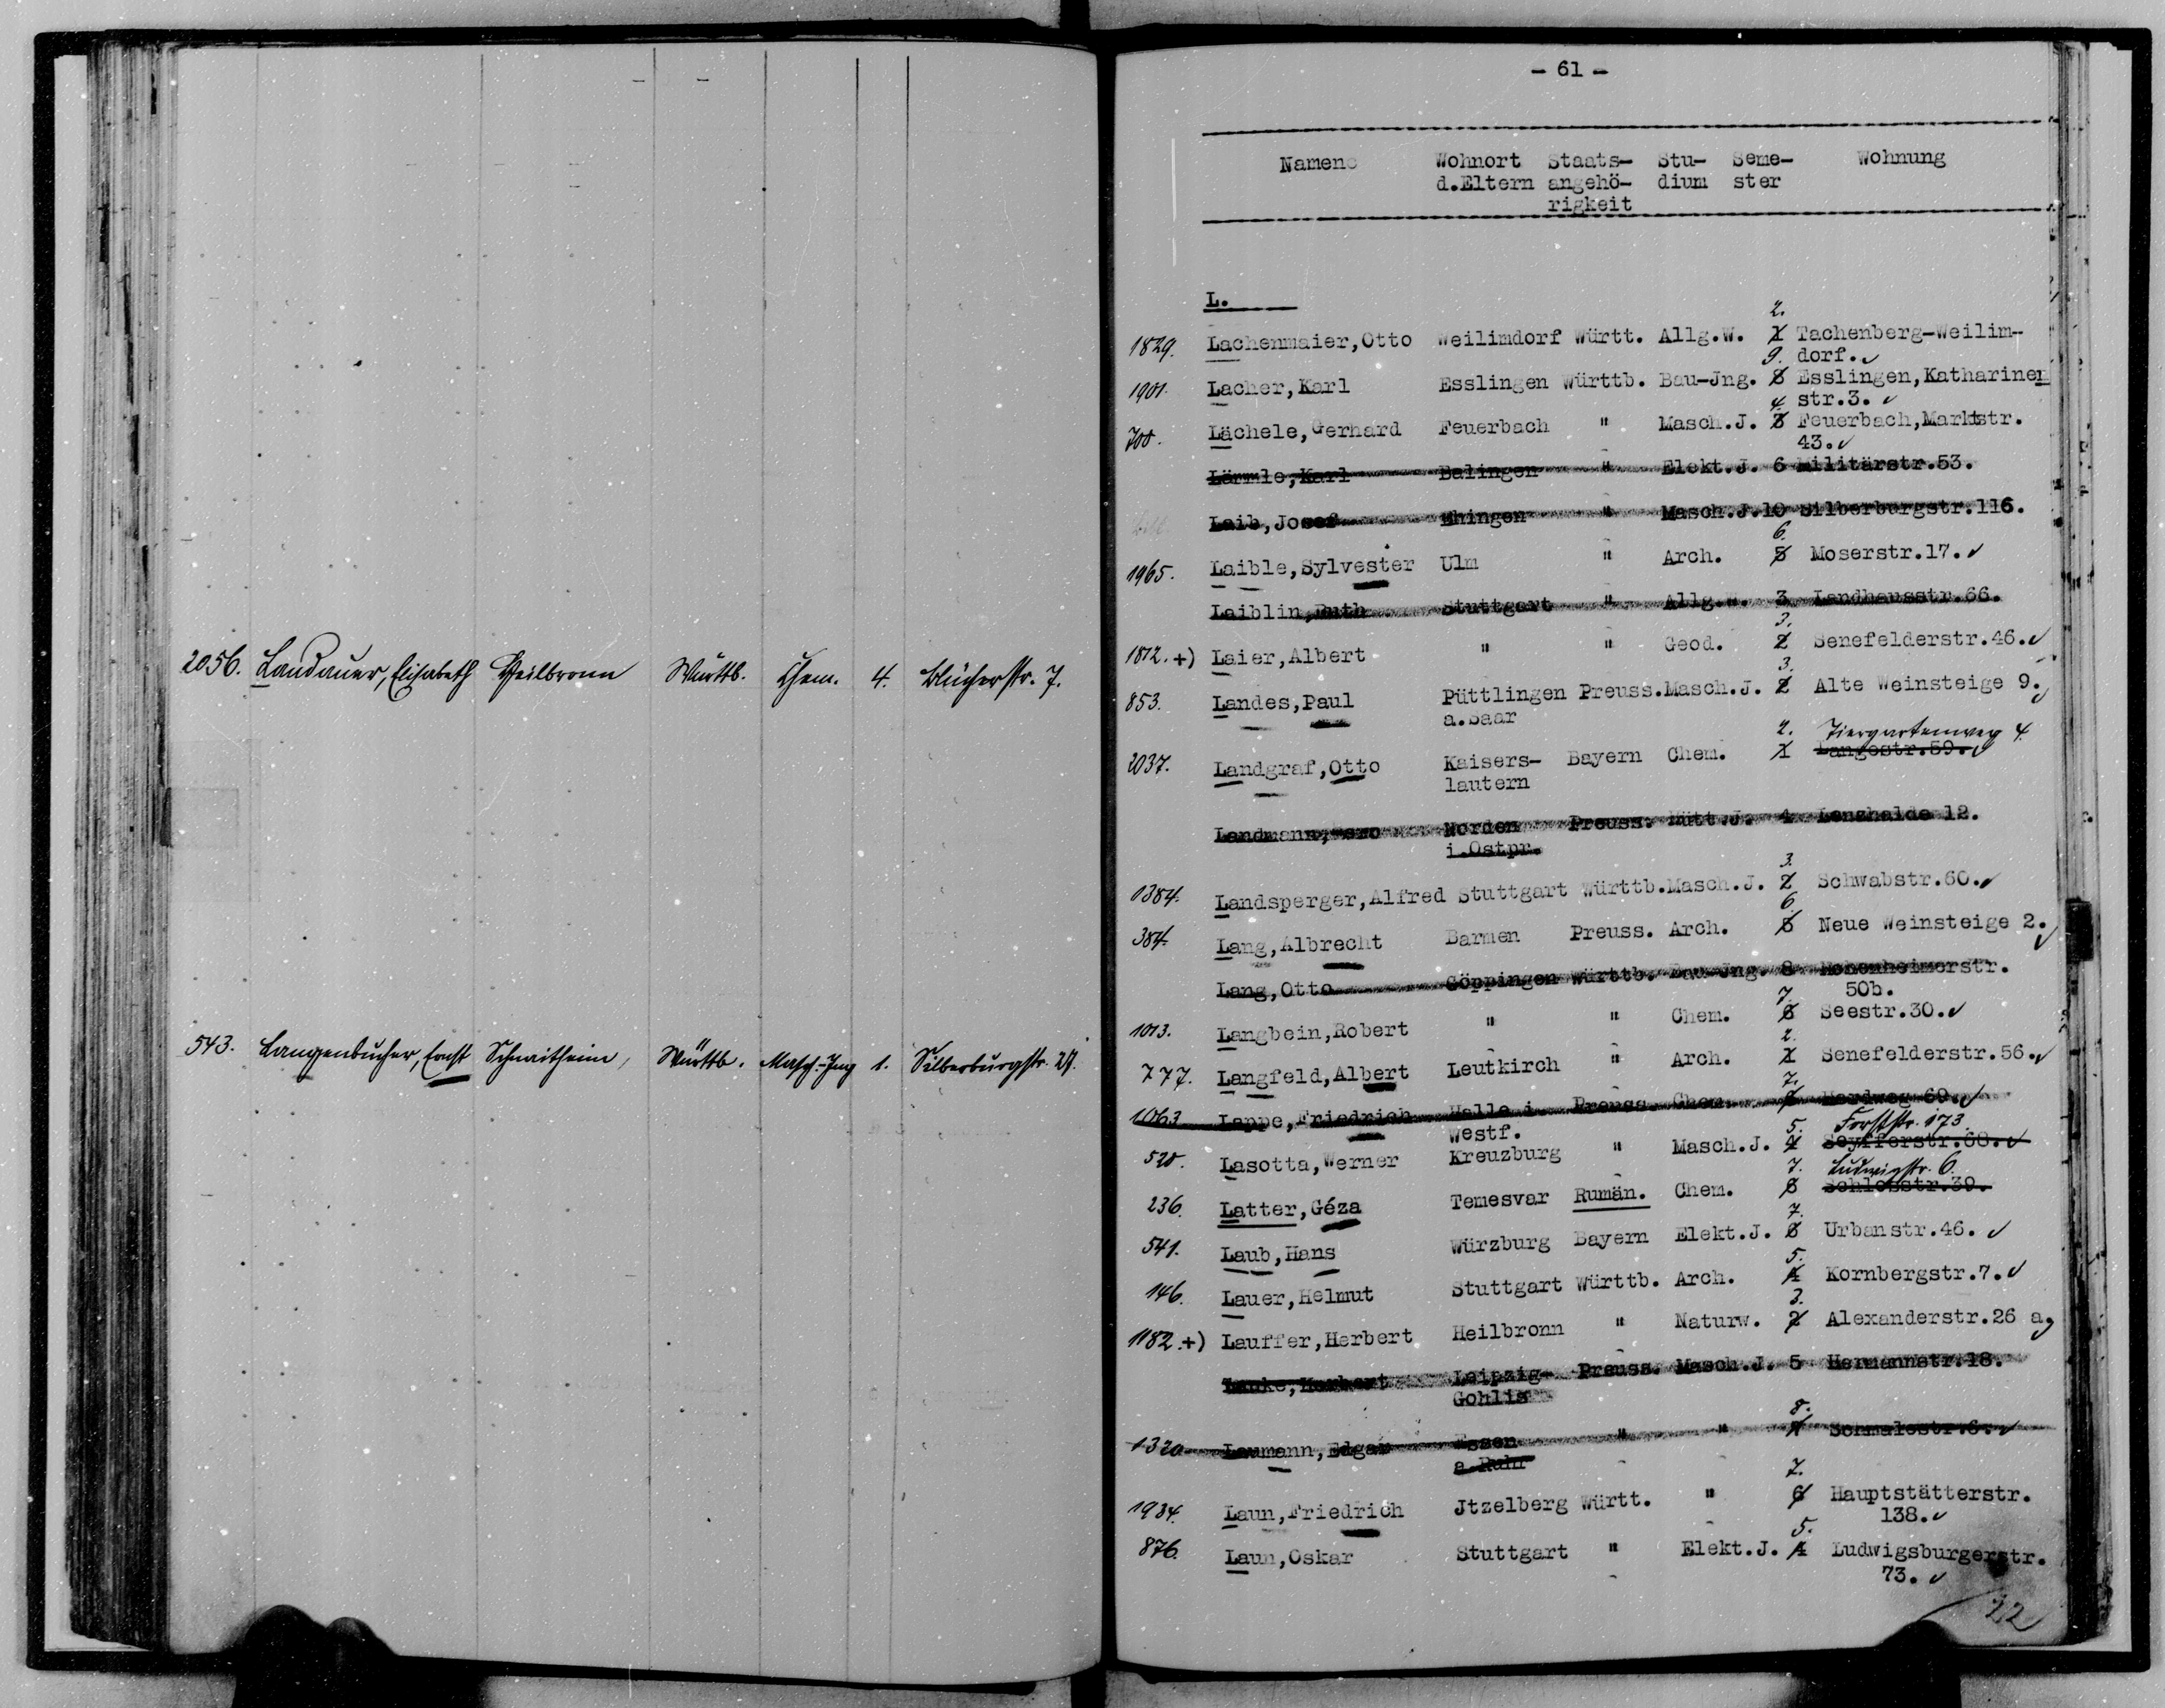 2056. Landauer, Elisabeth Heilbronn Württb. Chem. 4. Blücherstr. 7.
543. Langenbucher, Ernst Schnaitheim, Württb. Masch.-Ing 1. Silberburgstr.
- 61 -
Namen Wohnort Staats- Stu- Seme- Wohnung
d.Eltern angehö- dium ster
rigkeit
L.
2.
1829. Lachenmaier,Otto Weilimdorf Württ. Allg.W. 1 Tachenberg-Weilim-
9. dorf.
1901. Lacher,Karl Esslingen Württb. Bau-Jng. 8 Esslingen,Katharinen
4. str.3.
700. Lächele,Gerhard Feuerbach " Masch.J. 3 Feuerbach,Marktstr.
43.
Lärmle,Karl Balingen " Elekt.J. 6 Militärstr.53.
Laib,Josef Ehingen " Masch.J.10 Silberburgstr.116.
6.
1965. Laible,Sylvester Ulm " Arch. 5 Moserstr.17.
Laiblin,Ruth Stuttgart " Allg.W. 3 Landhausstr.66.
3.
1812. +) Laier,Albert " " Geod. 2 Senefelderstr.46.
3.
853. Landes,Paul Püttlingen Preuss.Masch.J. 2 Alte Weinsteige 9.
a.Saar
2. Tiergartenweg 4
2037. Landgraf,Otto Kaisers- Bayern Chem. 1 Langestr.59.
lautern
Landmann, Norden Preuss. Hütt.J. 4 Lenzhalde 12.
i.Ostpr.
3.
1384. Landsperger,Alfred Stuttgart Württb.Masch.J. 2 Schwabstr.60.
6
384. Lang,Albrecht Barmen Preuss. Arch. 5 Neue Weinsteige 2.
Lang,Otto Göppingen Württb. Bau-Jng. 8 Hohenheimerstr.
7. 50b.
1013. Langbein,Robert " " Chem. 6 Seestr.30.
2.
777. Langfeld,Albert Leutkirch " Arch. 1 Senefelderstr.56.
7.
1063 Lappe,Friedrich Halle i. Preuss. Chem. Herdweg 69.
Westf. 5. Forststr. 173.
520. Lasotta,Werner Kreuzburg " Masch.J. 4 Seyfferstr.68.
7. Ludwigstr. 6.
236. Latter,Géza Temesvar Rumän. Chem. 6 Schlosstr.39.
7.
541. Laub,Hans Würzburg Bayern Elekt.J. 6 Urbanstr.46.
5.
146. Lauer,Helmut Stuttgart Württb. Arch. 4 Kornbergstr.7.
3.
1182.+) Lauffer,Herbert Heilbronn " Naturw. 2 Alexanderstr.26 a
Herbert Leipzig- Preuss. Masch.J. 5 Hermannstr.18.
Gohlis
8.
1320 Laumann,Edgar Essen " " 7 Schmalestr.6.
a.Ruhr
7.
1934. Laun,Friedrich Jtzelberg Württ. " 6 Hauptstätterstr.
138.
5.
876. Laun,Oskar Stuttgart " Elekt.J. 4 Ludwigsburgerstr.
73.
22